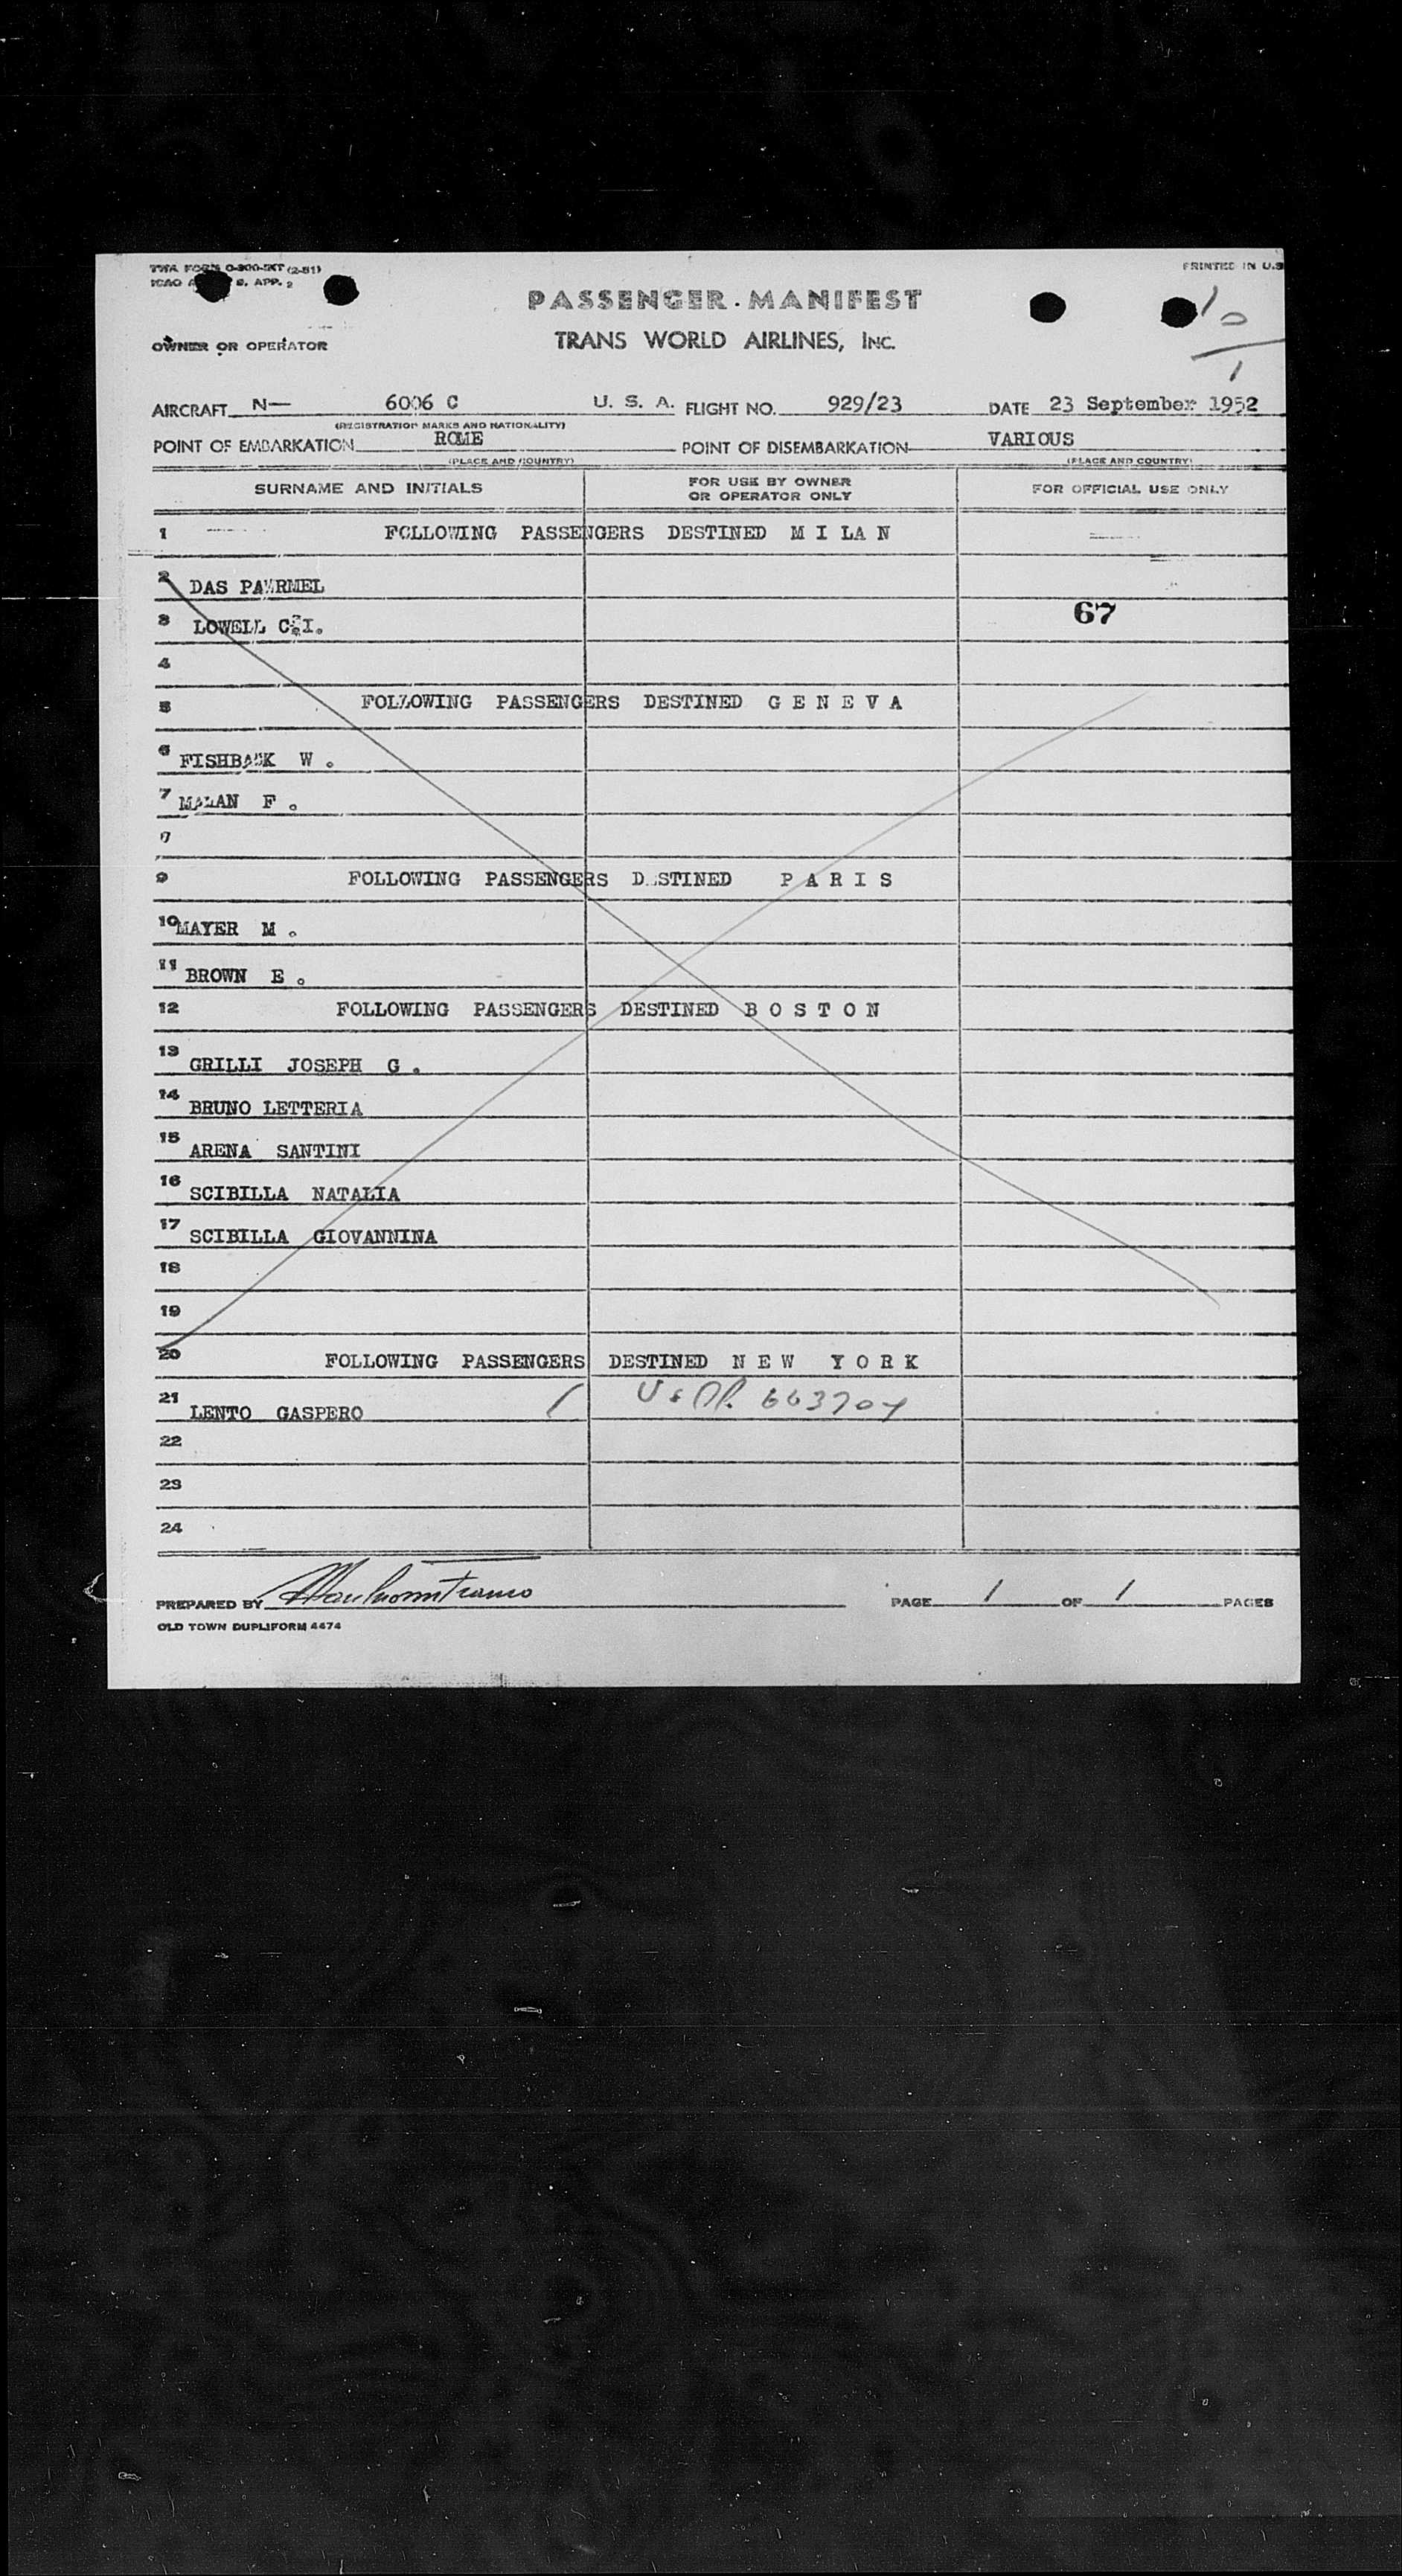 TWA FORM O-800-INT (2-51)
ICAO A 9, APP. 2
PRINTED IN U.S
PASSENGER MANIFEST
1 0
1
OWNER OR OPERATOR
TRANS WORLD AIRLINES, INC.
AIRCRAFT N— 6006 C U. S. A. FLIGHT NO. 929/23 DATE 23 September 1952
(REGISTRATION MARKS AND NATIONALITY)
POINT OF EMBARKATION ROME POINT OF DISEMBARKATION VARIOUS
(PLACE AND COUNTRY) (PLACE AND COUNTRY)
SURNAME AND INITIALS FOR USE BY OWNER OR OPERATOR ONLY FOR OFFICIAL USE ONLY
1 FOLLOWING PASSENGERS DESTINED M I LA N
2 DAS
3 LOWELL C.I. 67
4
5 FOLLOWING PASSENGERS DESTINED G E N E V A
6 FISHBACK W .
7 F .
8
9 FOLLOWING PASSENGERS DESTINED P A R I S
10 MAYER M .
11 BROWN E .
12 FOLLOWING PASSENGERS DESTINED B O S T O N
13 GRILLI JOSEPH G .
14 BRUNO LETTERIA
15 ARENA SANTINI
16 SCIBILLA NATALIA
17 SCIBILLA GIOVANNINA
18
19
20 FOLLOWING PASSENGERS DESTINED N E W Y O R K
21 LENTO GASPERO / 663704
22
23
24
PREPARED BY PAGE 1 OF 1 PAGES
OLD TOWN DUPLIFORM 4474